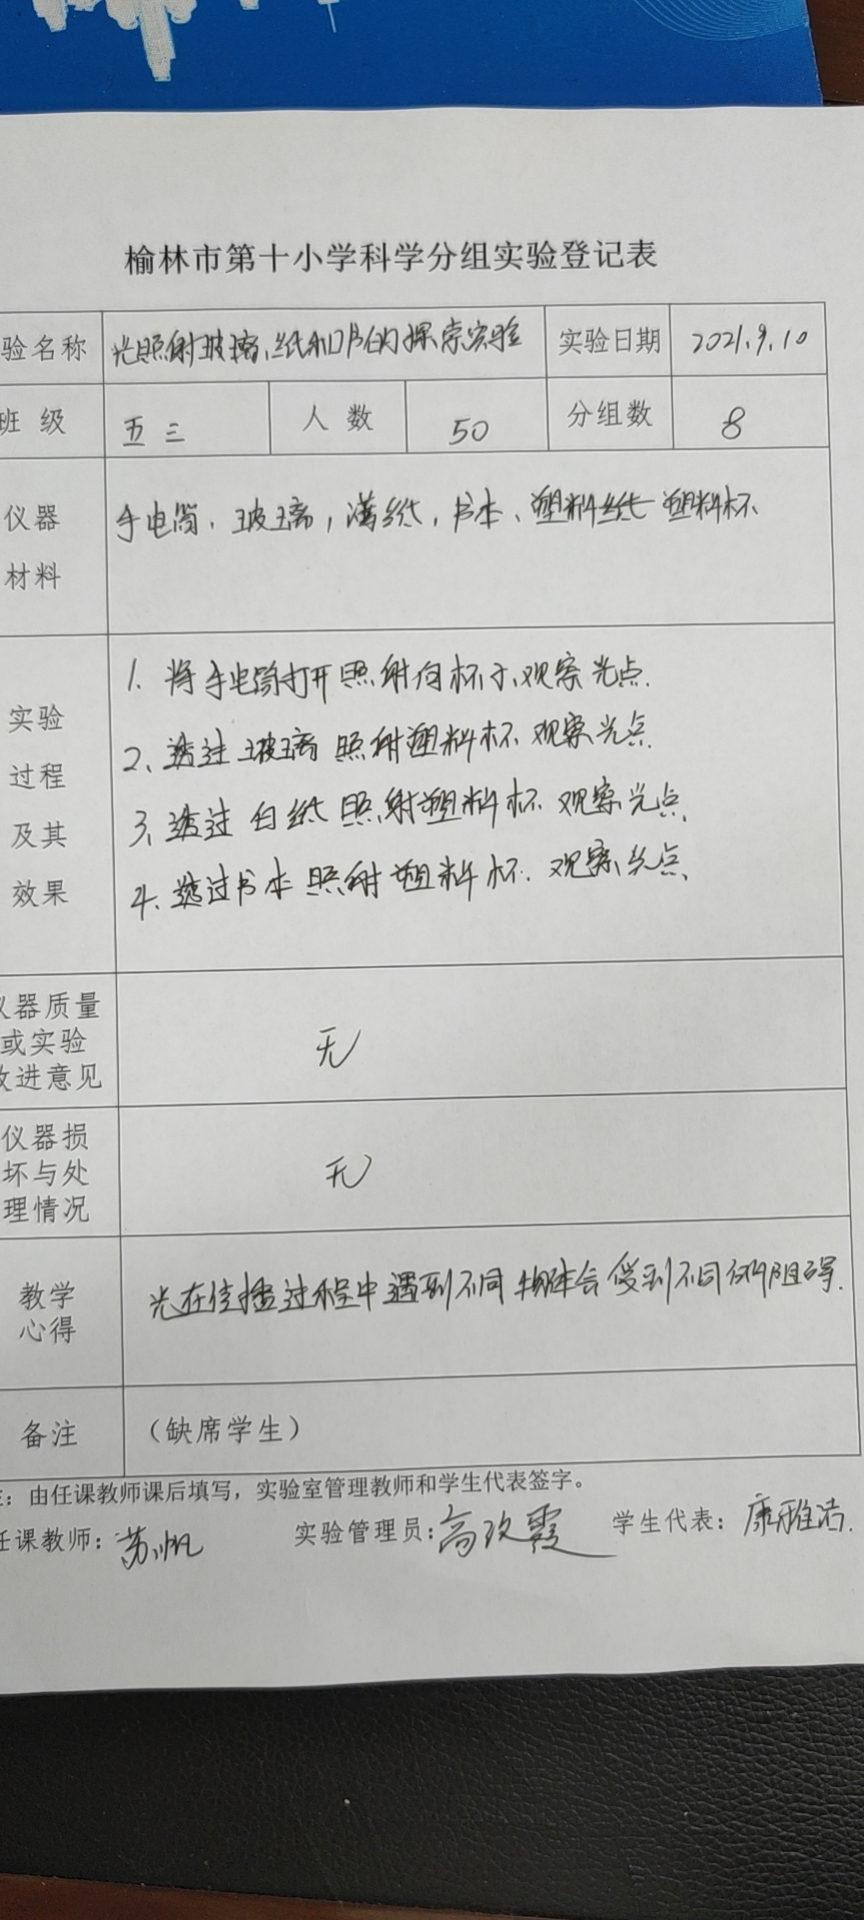 榆林市第十小学科学分组实验登记表
验名称 光照射玻璃、纸和书的探索实验 实验日期 2021.9.10
班 级 五 三 人 数 50 分组数 8
仪器
材料
手电筒、玻璃，薄纸，书本、塑料纸 塑料杯
实验
过程
及其
效果
1. 将手电筒打开照射向杯子，观察光点.
2、透过玻璃照射塑料杯 观察光点
3、透过白纸照射塑料杯 观察光点
4. 透过书本照射塑料杯. 观察光点、
仪器质量
或实验
改进意见
无
仪器损
坏与处
理情况
无
教学
心得
光在传播过程中遇到不同物体会受到不同的阻碍.
备注 （缺席学生）
注：由任课教师课后填写，实验室管理教师和学生代表签字。
任课教师：苏帆 实验管理员：高改霞 学生代表：康雅洁.